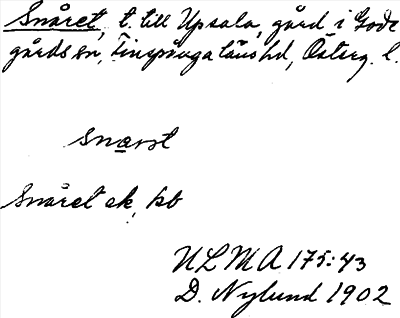 Snåret, t. till Upsala, gård i Gode
gårds sn, Finspånga läns hd, Österg. l.
snæret
Snåret ek, kb
ULMA 175:43
D. Nylund 1902